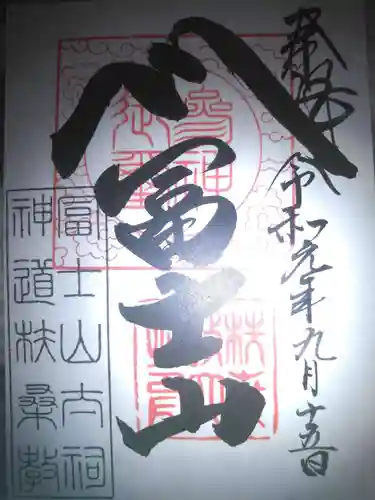 登拝
令和元年九月十五日
冨士山
冨士山大祠
神道扶桑教